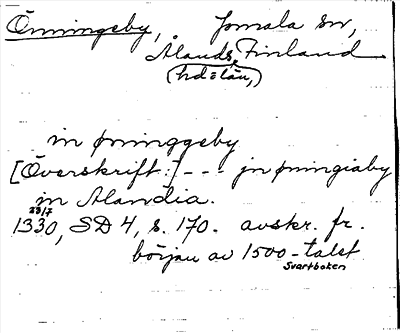 Önningeby, Jomala sn,
Ålands, Finland
(hd o län,)
in ønninggeby
[Överskrift:] - - - jn ønningiaby
in Alandia.
23/7
1330, SD 4, s. 170. avskr. fr.
början av 1500-talet
Svartboken